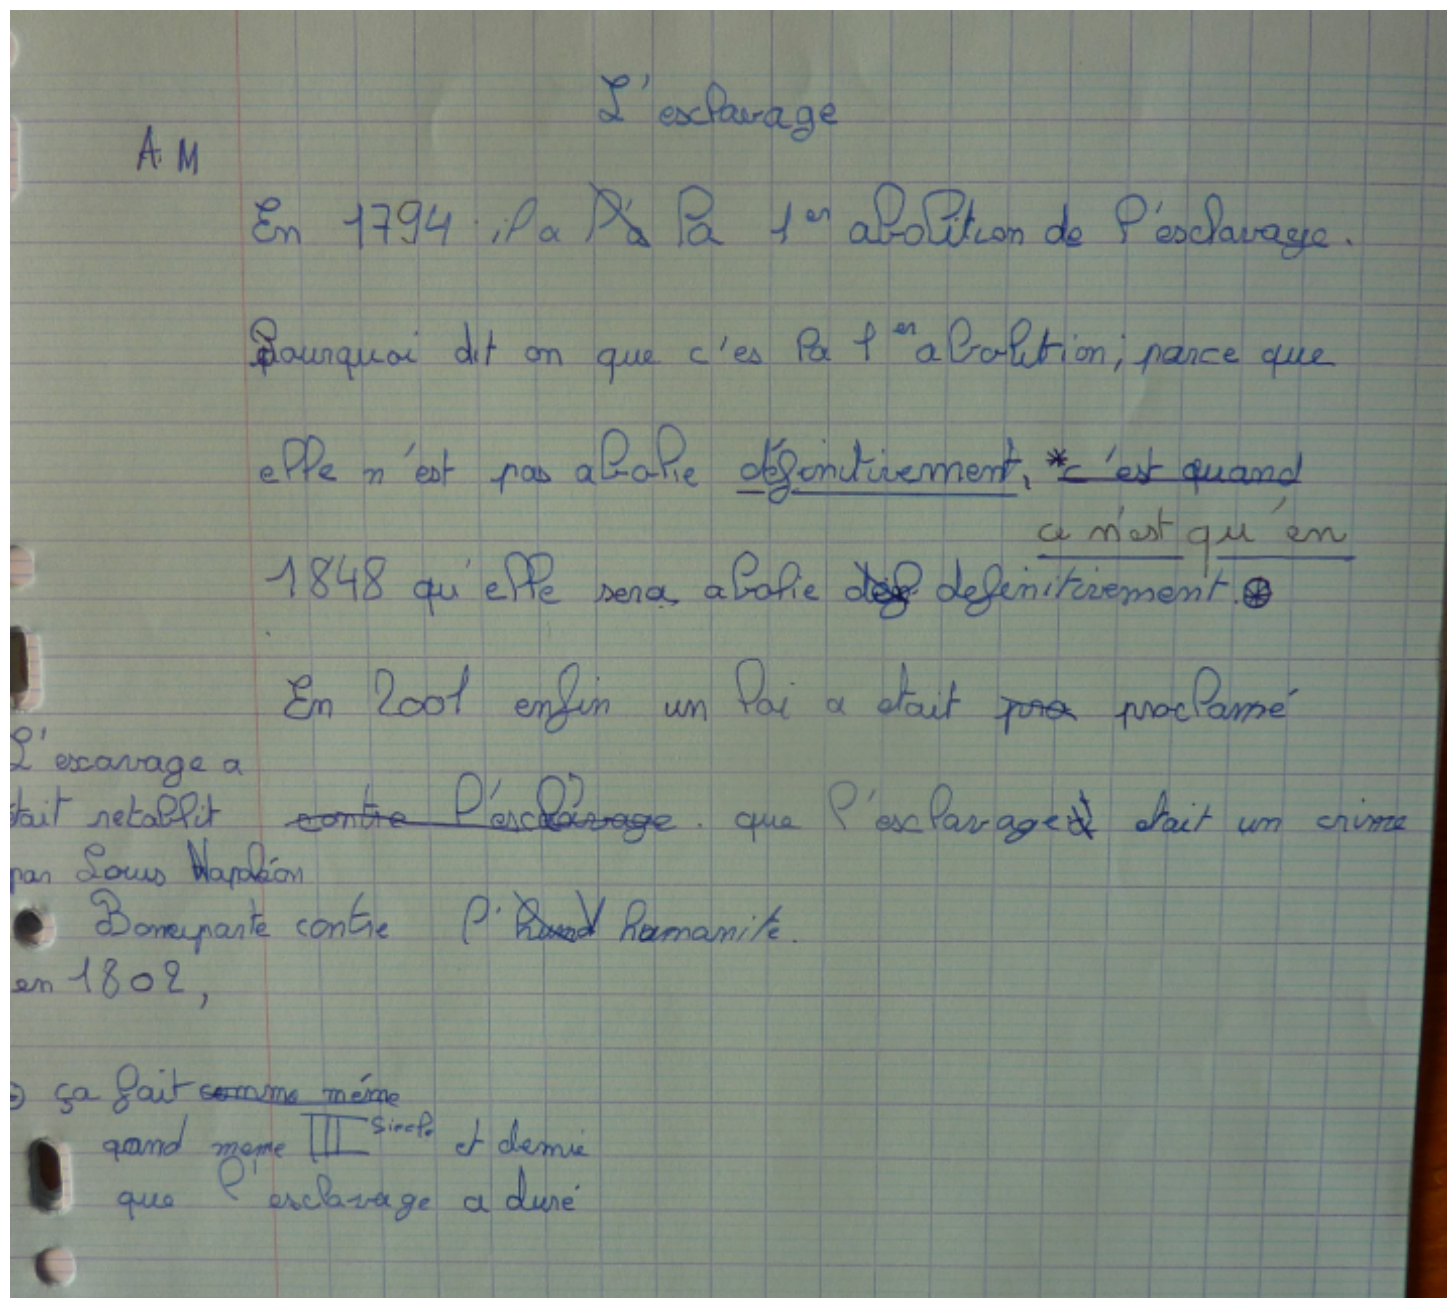 L'esclavage
A.M
En 1794 il a l'a la 1er abolition de l'esclavage.
Pourquoi dit on que c'es la 1er abolition, parce que
elle n'est pas abolie définitivement, *c'est quand
ce n'est qu'en
1848 qu'elle sera abolie def definitivement.
En 2001 enfin un loi a etait pro proclamé
contre l'esclavage. que l'esclavage etait un crime
contre l' humanité.
L'escavage a
tait retablit
par Louis Napoléon
Bonaparte
en 1802,
ça fait comme même
quand meme III siecle et demie
que l'esclavage a duré